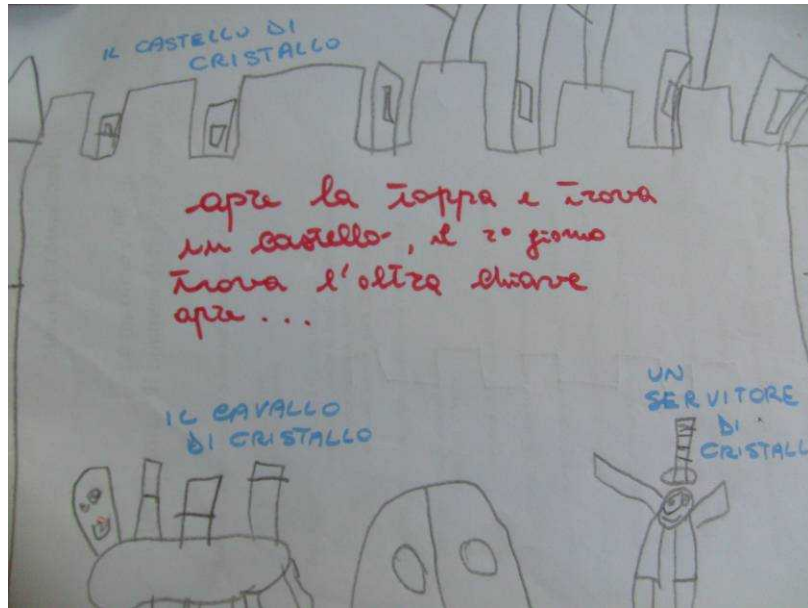 IL CASTELLO DI
CRISTALLO
apre la toppa e trova
un castello, il 2° giorno
trova l'altra chiave
apre...
IL CAVALLO
DI CRISTALLO
UN
SERVITORE
DI
CRISTALL